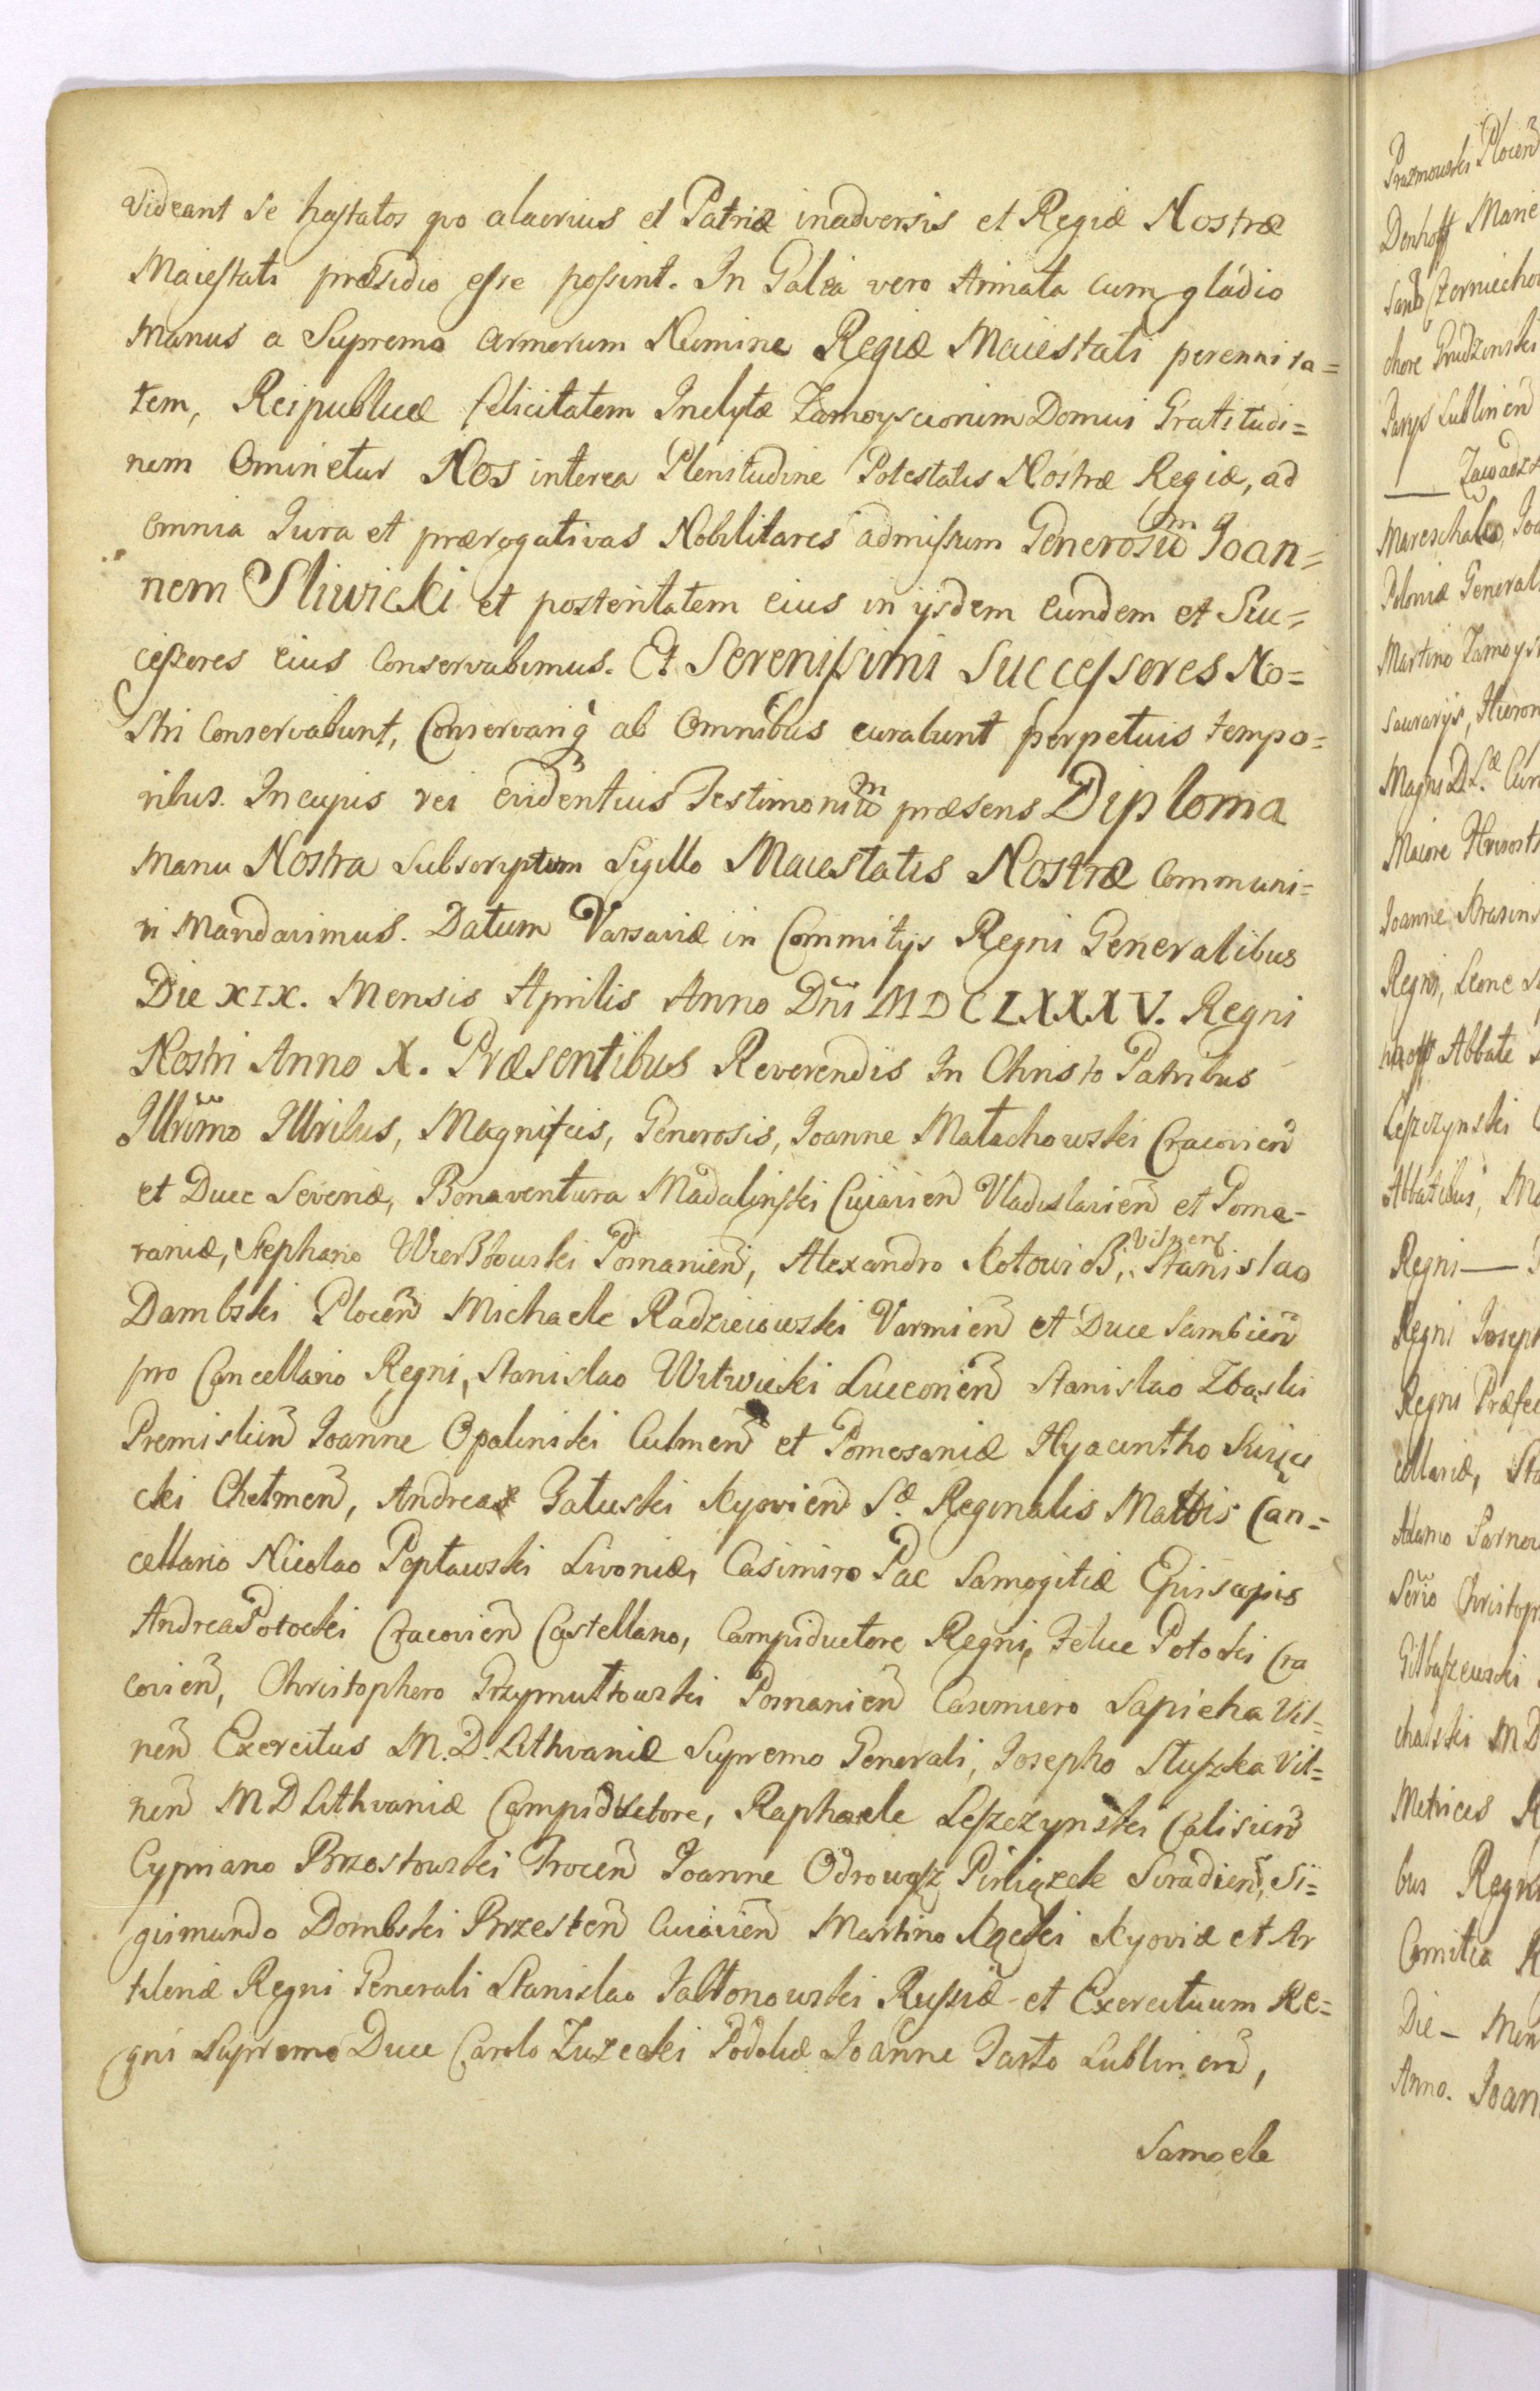 videant se hastatos quo alacrius et Patriæ inadversis et Regiæ Nostræ
Maiestati præsidio esse possint. In Galea vero Armata cum gladio
manus a Supremo armorum Numine Regiæ Maiestati perennita=
tem, Reipublicæ felicitatem Inclytæ Zamoyscionum Domui Gratitudi=
nem Ominetur Nos interea Plenitudine Potestatis Nostræ Regiæ, ad
omnia Jura et prærogativas Nobilitares admissum Generosum Joan=
nem Sliwicki et posteritatem eius in ijsdem eundem et Suc=
cessores eius Conservabimus. Et Serenissimi Successores No=
stri Conservabunt, Conservariq ab Omnibus curabunt perpetuis tempo=
ribus. In cujus rei evidentius Testimonium præsens Diploma
Manu Nostra Subscriptum Sigillo Maiestatis Nostræ Communi=
ri Mandavimus. Datum Varsaviæ in Commitijs Regni Generalibus
Die XIX. Mensis Aprilis Anno Dni MDCLXXXV. Regni
Nostri Anno X. Præsentibus Reverendis In Christo Patribus
Illrimo Illribus, Magnificis, Generosis, Joanne Matachowski Cracovien
et Duce Severiæ, Bonaventura Madalinski Cuiavien Vladislavien et Pome=
raniæ, Stephano Wierßbowski Posnanien, Alexandro Kotowiß, Vilnen Stanislao
Dambski Plocen Michaele Radzieiowski Varmien et Duce Sambien
pro Cancellario Regni, Stanislao Witwicki Luceorien Stanislao Zbąski
Premislien Joanne Opalinski Culmen et Pomesaniæ Hyacintho Swięci
cki Chelmen, Andreas Zaluski Kyovien S.æ Reginalis Mattis Can=
cellario Nicolao Poptawski Livoniæ, Casimiro Pac Samogitiæ Episcopis
Andrea Potocki Cracovien Castellano, Campiductore Regni, Felice Potocki Cra
covien, Christophero Grzymuttowski Posnanien Casimiero Sapieha Vil=
nen Exercitus M.D. Lithvaniæ Supremo Generali, Josepho Sluszka Vil=
nen M D Lithvaniæ Campiductore, Raphaele Leszczynski Calisien
Cypriano Brzostowski Trocen Joanne Odrowąsz Pieniązek Siradien, Si=
gismundo Dombski Brzesten Cuiavien Martino Kącki Kyoviæ et Ar
tileriæ Regni Generali Stanislao Jabłonowski Russiæ et Exercituum Re=
gni Supremo Duce Carolo Luzecki Podoliæ Joanne Tarło Lublinen,
Samoele
Prazmowski Plocen
Denhoff Marie
chore Grudzinski
Parys Lublinen
Mareschalco, Joa
Poloniæ General
Martino Zamoys
Magni D L.æ
Regni, Leone
Abbate
Leszczynski
Abbatibus, Ma
Regni —
Regni Joseph
Regni Præfec
cellariæ, Sta
Adamo Sarnow
chalski M D
Metrices R
bus Regni
Comitia R
Die — Men
Anno. Joan